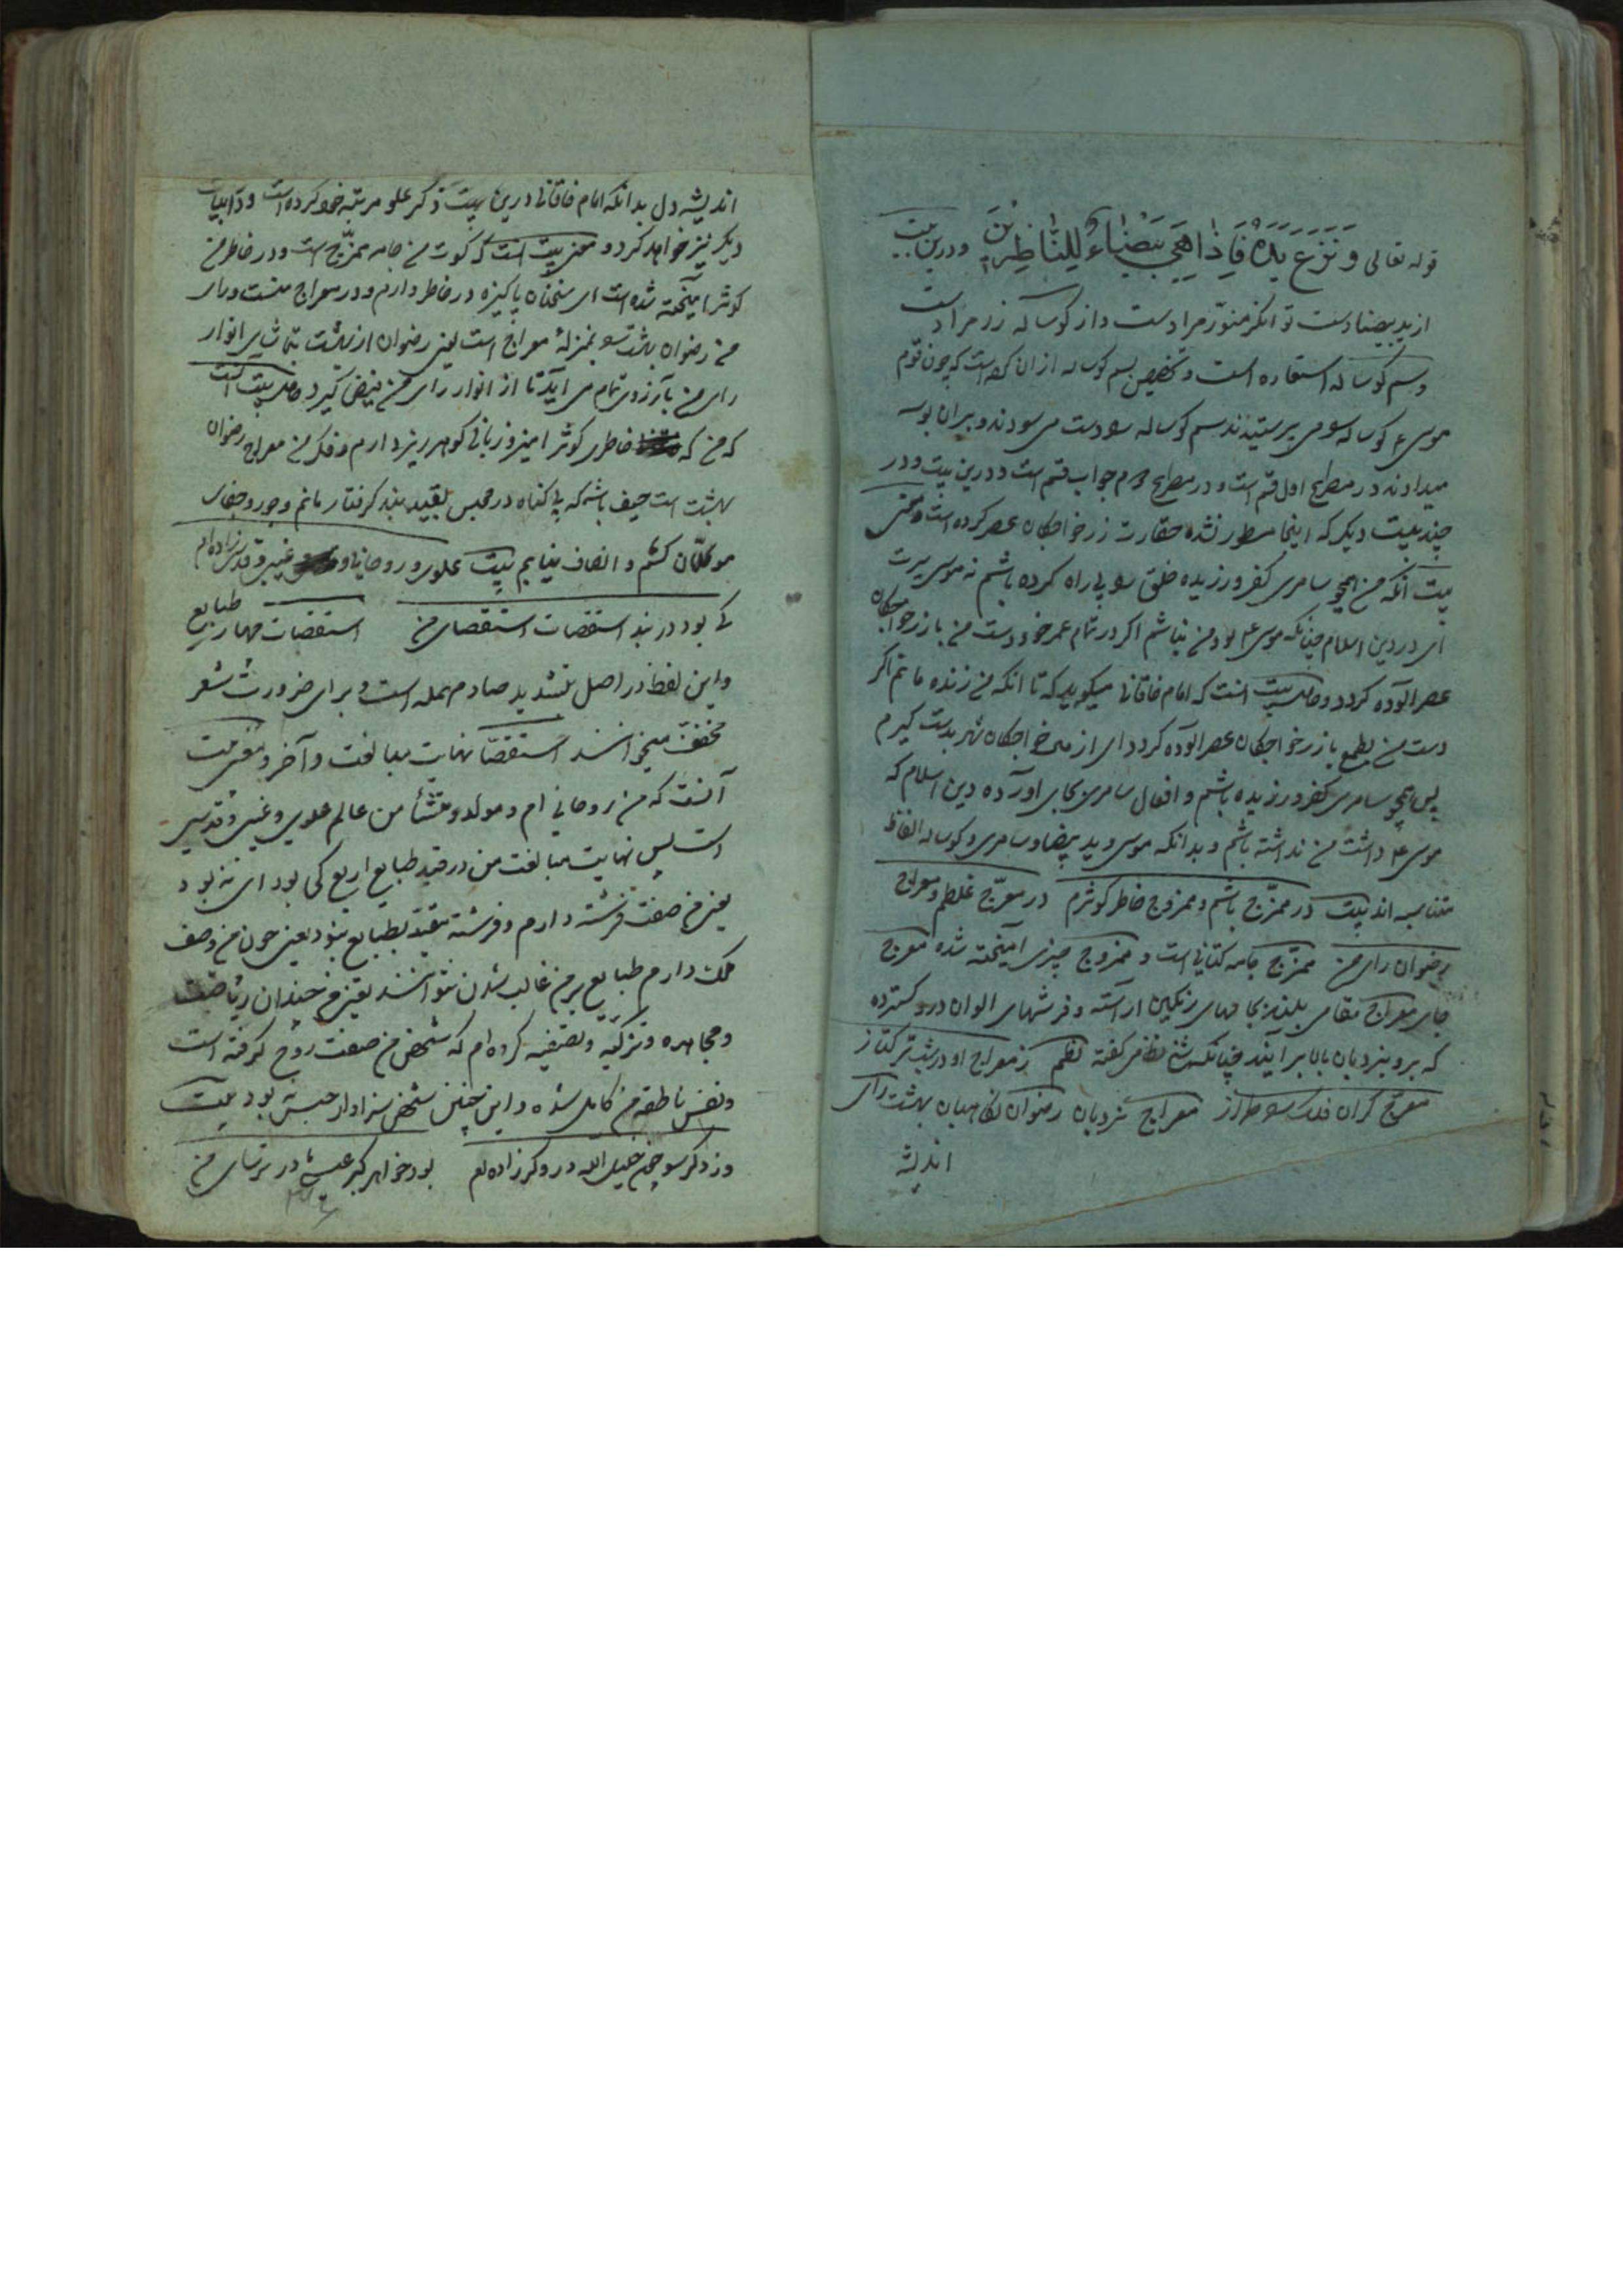 قوله تعالی وَنَزَعَ یَدَهُ فَاِذَا هِیَ بَیْضَاءُ لِلنَّاظِرِیْنَ ودرین بیت
از ید بیضا دست توانگر منور مراد است و از کوساله زر مراد است
و سم کوساله استعاره است و تخصیص بسم کوساله از ان کرده است که چون قوم
موسی ء کوساله را می پرستیدند سم کوساله را دست می سودند و بران بوسه
میدادند در مصراع اول قسم است و در مصراع دوم جواب قسم است و درین بیت و در
چند بیت دیکر که اینجا مسطور نشده حقارت زر خواجکان عصر کرده است و معنی
بیت آنکه من همچو سامری کفر ورزیده خلق را بی راه کرده باشم نه موسی سیرت
ای در دین اسلام چنانکه موسی ء بود من نباشم اکر در تمام عمر خود دست من با زر خواجکان
عصر آلوده کردد و حاصل بیت آنست که امام خاقانی میکوید که تا انکه من زنده مانم اکر
دست من بطمع با زر خواجکان عصر آلوده کردد ای از خواجکان شهر بدست کیرم
پس همچو سامری کفر ورزیده باشم و افعال سامری بجای اورده دین اسلام که
موسی ء داشت من نداشته باشم و بدانکه موسی و ید بیضا و سامری و کوساله الفاظ
متناسبه اند بیت در ممزج باشم و ممزوج خاطر کوثرم در معرج غلطم و معراج
رضوان رای من ممزج جامه کتانی است و ممزوج چیزی آمیخته شده معرج
جای معراج مقامی بلند بجامهای رنکین اراسته و فرشهای الوان درو کسترده
که برو بنردبان بالا برآیند چنانکه شیخ نظامی کفته نظم ز معراج او در شب ترکتاز
معرج کران فلک را طراز معراج نردبان رضوان نکاهبان بهشت رای
اندیشه
اندیشه دل بدانکه امام خاقانی درین بیت ذکر علو مرتبه خود کرده است و در ابیات
دیکر نیز خواهد کرد و معنی بیت آنست که کسوت من جامه ممزج است و در خاطر من
کوثر آمیخته شده است ای سخنان پاکیزه در خاطر دارم و در معراج منست و رای
من رضوان بهشت را بمنزلهٔ معراج است یعنی رضوان از بهشت بتماشای انوار
رای من بآرزوی تمام می آید تا از انوار رای من فیض کیرد حاصل بیت آنست
که من که خاطری کوثر امیز و زبانی کوهر ریز دارم و فکر من معراج رضوان
بهشت است حیف باشد که بی کناه در محبس بقید بند کرفتار مانم و جور و جفای
موکلان کشم و انصاف نیابم بیت علوی و روحانی و غیبی و قدسی زاده ام
کی بود در بند استقصات استقصای من استقصات چهار طبایع
و این لفظ در اصل بتشدید صاد مهمله است و برای ضرورت شعر
مخفف میخوانند استقصا نهایت مبالغت و آخر و معنی بیت
آنست که من روحانی ام و مولد و منشأ من عالم علوی و غیبی و قدسی
است پس نهایت مبالغت من در قید طبایع اربع کی بود ای نه بود
یعنی من صفت فرشته دارم و فرشته مقید بطبایع نبود یعنی چون من وصف
ملک دارم طبایع بر من غالب شدن نتوانند یعنی من چندان ریاضت
و مجاهده و تزکیه و تصفیه کرده ام که شخص من صفت روح کرفته است
و نفس ناطقه من کامل شده و این چنین شخص سزاوار حبس نه بود بیت
وز دکر سو چون خلیل الله دروکر زاده ام بود خواهر کیر عیسی مادر ترسای من